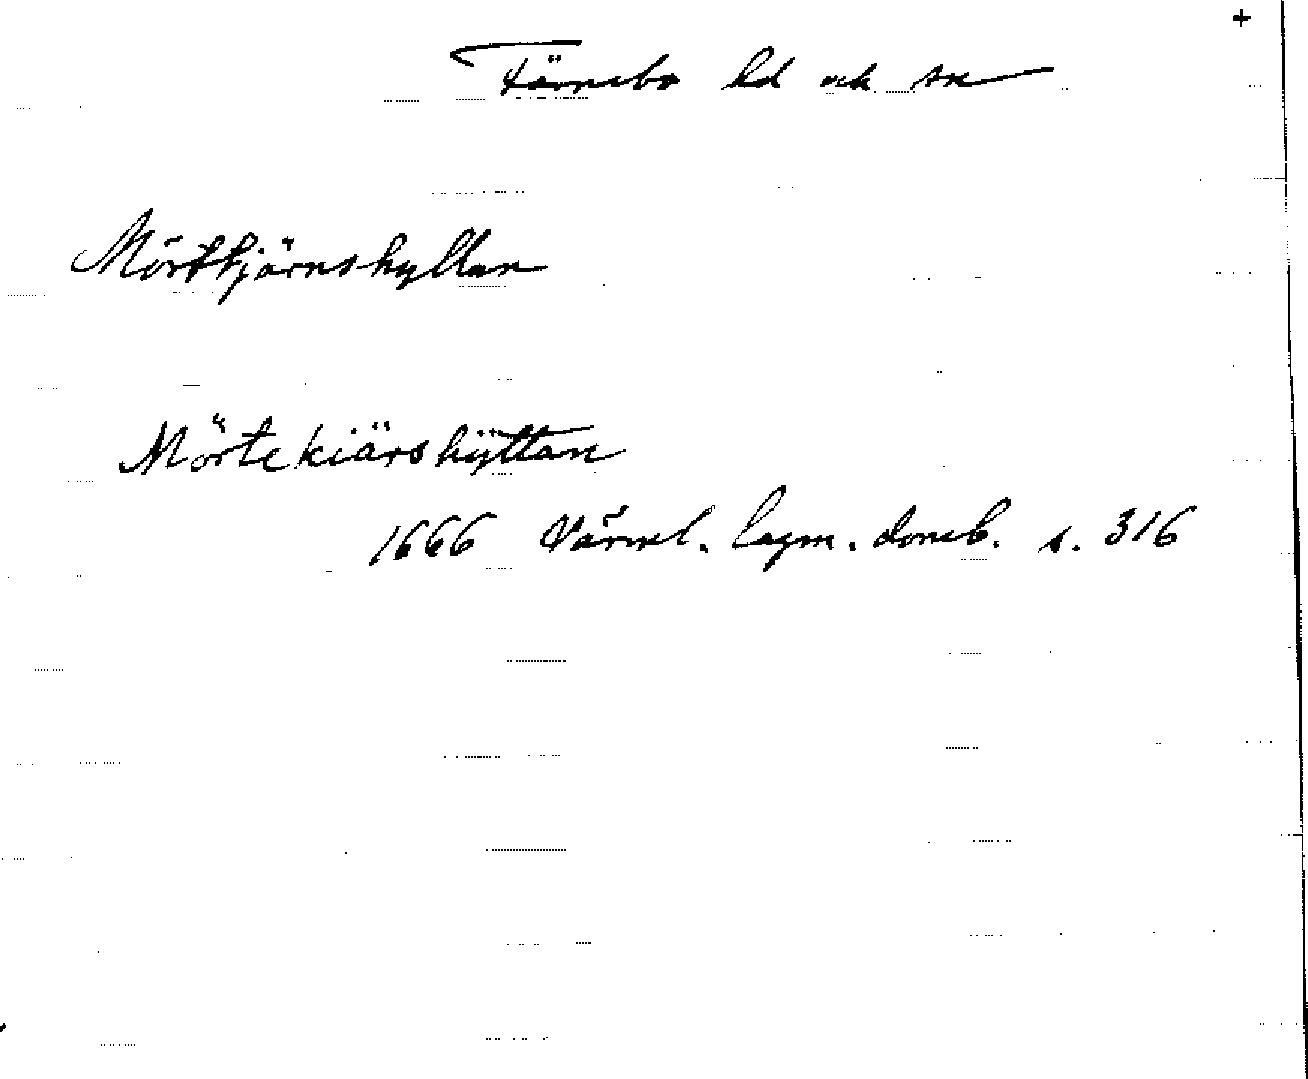 +
Färnebo hd och sn
Mörttjärnshyttan
Mörtekiärshÿttan
1666 Värml. lagm. domb. s. 316